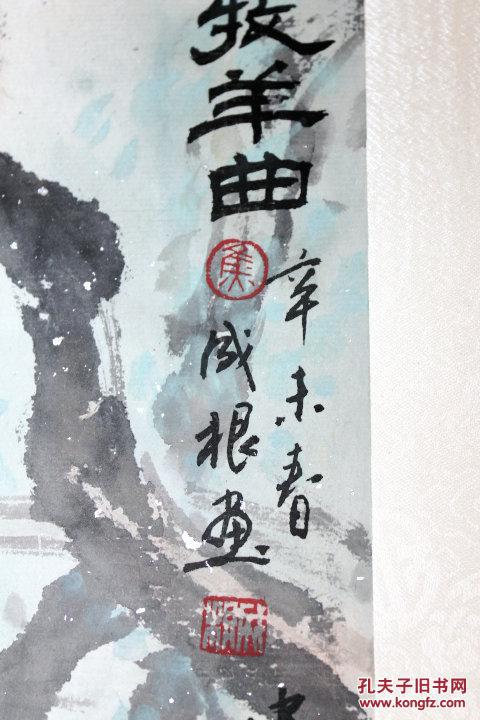 牧羊曲
辛未春
焦
成根画
孔夫子旧书网
www.kongfz.com